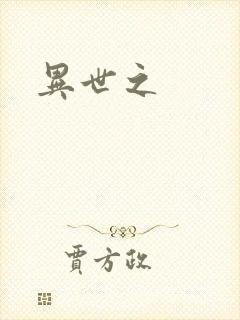 異世之
賈方政